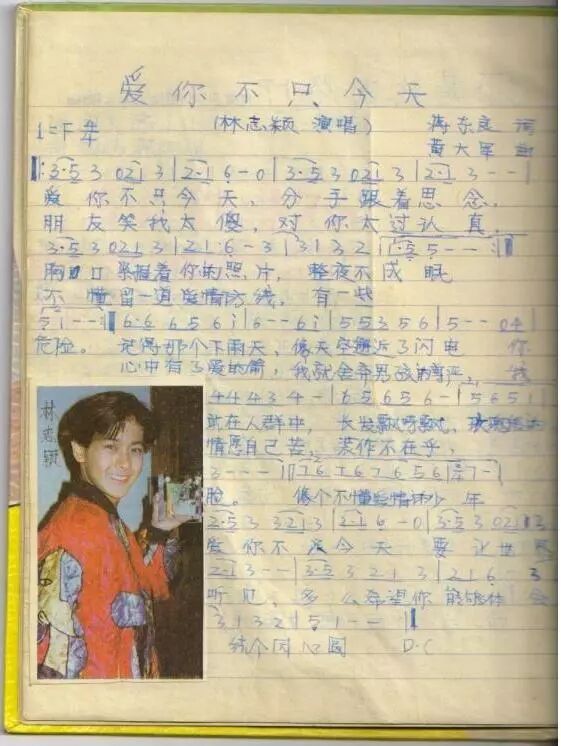 爱你不只今天
1=F 4/4 (林志颖 演唱) 蒋东良 词
黄大军 曲
3·5 3 0 2 1 3 | 2·1 6 - 0 | 3·5 3 0 2 1 3 | 2·1 3 - - |
爱你不只今天，分手跟着思念，
朋友笑我太傻，对你太过认真
3·5 3 0 2 1 3 | 2 1 · 6 - 3 | 3 1 3 2
胸口 紧握着你的照片，整夜不成眠
不懂留一道爱情防线，有一些
5 1 - - 6·6 6 5 6 i | 6 - - 6 i | 5 5 3 5 6 | 5 - -
危险。记得那个下雨天，像天空 了闪电 你
心中有了爱的箭，我就舍弃男孩的尊严，我
4 4 4 3 4 - | 6 5 6 5 6 - | 5 6 5 1
站在人群中，长发飘呀飘，
情愿自己苦，装作不在乎，
3 - - - -
脸。像个不懂爱情的少年
2·5 3 3 2 1 3 | 2·1 6 - 0 | 3·5 3 0 2 1 3
爱你不 今天 要让世界
2·1 3 - - | 3·5 3 2 1 3 | 2 1 6 3
听见，多么希望你能够体会
3 1 3 2 | 5 1 - - ‖
D.C
林志颖